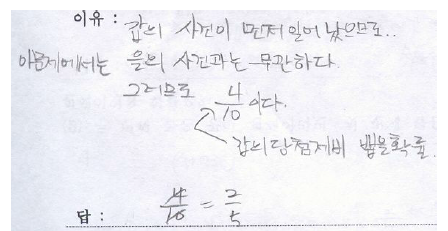 이유 : 갑의 사건이 먼저 일어 났으므로..
이문제에서는 을의 사건과는 무관하다.
그러므로 4/10 이다.
갑의 당첨제비 뽑을확률.
답 : 4/10 = 2/5